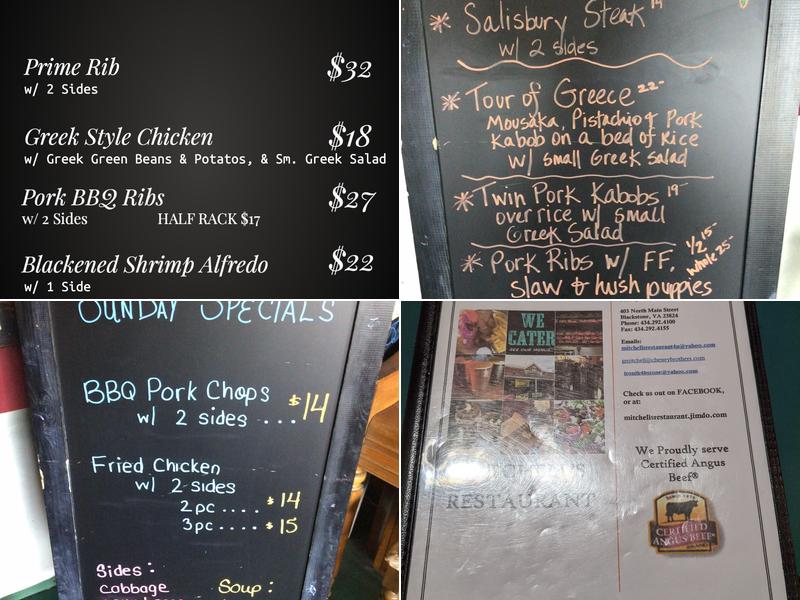 Prime Rib $32
w/ 2 Sides
Greek Style Chicken $18
w/ Greek Green Beans & Potatos, & Sm. Greek Salad
Pork BBQ Ribs $27
w/ 2 Sides HALF RACK $17
Blackened Shrimp Alfredo $22
w/ 1 Side
* Salisbury Steak 14
w/ 2 sides
* Tour of Greece 22-
Mousaka, Pistachio & Pork
Kabob on a bed of Rice
w/ small Greek salad
* Twin Pork Kabobs 19-
over rice w/ small
Greek Salad
* Pork Ribs w/ FF, 1/2 15-
whole 25-
slaw & hush puppies
SUNDAY SPECIALS
BBQ Pork Chops
w/ 2 sides ... $14
Fried Chicken
w/ 2-sides
2pc .... $14
3pc .... $15
Sides:
Cabbage Soup:
WE
CATER
SEE OUR MENUS
RESTAURANT
403 North Main Street
Blackstone, VA 23824
Phone: 434.292.4100
Fax: 434.292.4155
Emails:
mitchellsrestaurant4u@yahoo.com
gmitchell@cheneybrothers.com
Check us out on FACEBOOK,
or at:
mitchellsrestaurant.jimdo.com
We Proudly serve
Certified Angus
Beef®
CERTIFIED
ANGUS BEEF